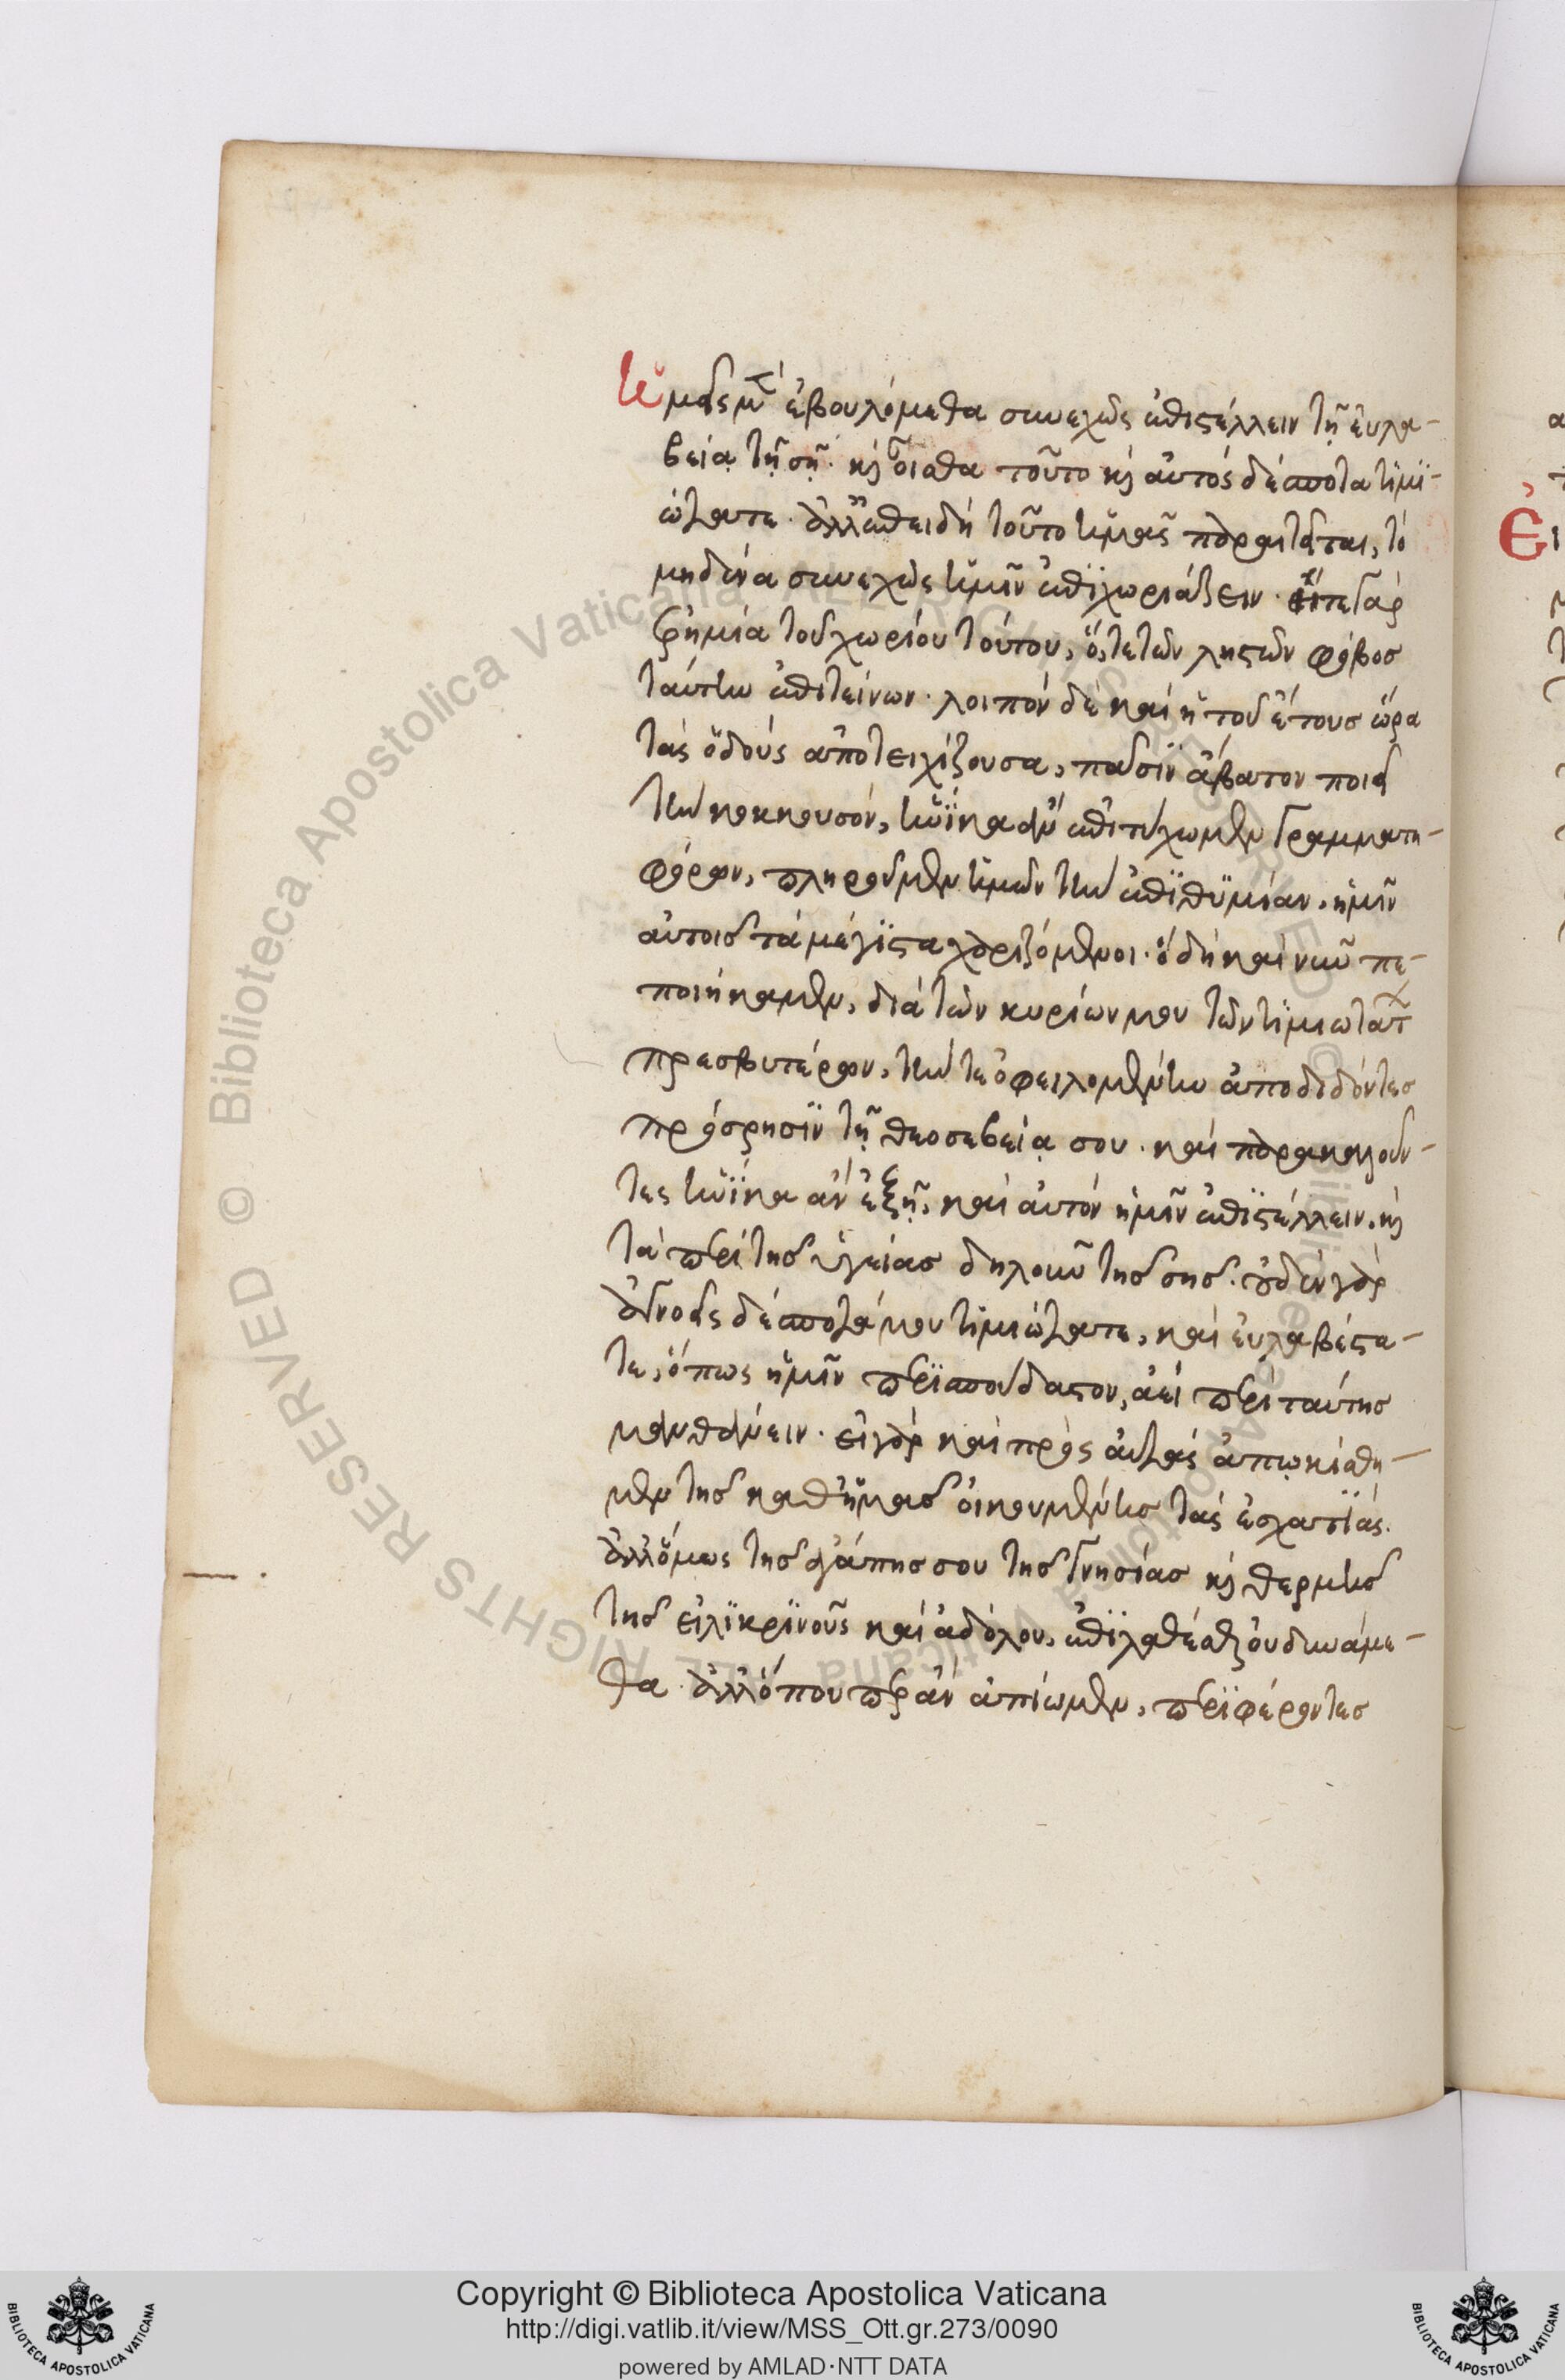 Ἡμεῖς μὲν ἐβουλόμεθα συνεχῶς ἐπιστέλλειν τῇ εὐλα-
βείᾳ τῇ σῇ· καὶ οἶσθα τοῦτο καὶ αὐτὸς δέσποτα τιμι-
ώτατε· ἀλλ' ἐπειδὴ τοῦτο ἡμᾶς παραιτεῖται, τὸ
μηδένα συνεχῶς ἡμῖν ἐπιχωριάζειν· ἥ τε γὰρ
ἐρημία τοῦ χωρίου τούτου, ὅ, τε τῶν λῃστῶν φόβος
ταύτην ἐπιτείνων· λοιπὸν δὲ καὶ ἡ τοῦ ἔτους ὥρα
τὰς ὁδοὺς ἀποτειχίζουσα, πᾶσιν ἄβατον ποιεῖ
τὴν κουκουσόν, ἡνίκα ἂν ἐπιτύχωμεν γραμματη-
φόρων, πληροῦμεν ἡμῶν τὴν ἐπιθυμίαν, ἡμῖν
αὐτοῖς τὰ μέγιστα χαριζόμενοι· ὃ δὴ καὶ νῦν πε-
ποιήκαμεν, διὰ τῶν κυρίων μου τῶν τιμιωτάτων
πρεσβυτέρων, τήν τε ὀφειλομένην ἀποδιδόντες
πρόσρησιν τῇ θεοσεβείᾳ σου· καὶ παρακαλοῦν-
τες ἡνίκα ἂν ἐξῇ, καὶ αὐτὸν ἡμῖν ἐπιστέλλειν, καὶ
τὰ περὶ τῆς ὑγείας δηλοῦν τῆς σῆς· οὐδὲν γὰρ
ἀγνοεῖς δέσποτά μου τιμιώτατε, καὶ εὐλαβέστα-
τε, ὅπως ἡμῖν περισπούδαστον, ἀεὶ περὶ ταύτης
μανθάνειν· εἰ γὰρ καὶ πρὸς αὐτὰς ἀπῳκίσθη-
μεν τῆς καθ' ἡμᾶς οἰκουμένης τὰς ἐσχατιάς·
ἀλλ' ὅμως τῆς ἀγάπης σου τῆς γνησίας καὶ θερμῆς
τῆς εἰλικρινοῦς καὶ ἀδόλου, ἐπιλαθέσθαι οὐ δυνάμε-
θα· ἀλλ' ὅπου περ ἂν ἀπίωμεν, περιφέροντες
Copyright © Biblioteca Apostolica Vaticana
http://digi.vatlib.it/view/MSS_Ott.gr.273/0090
powered by AMLAD·NTT DATA